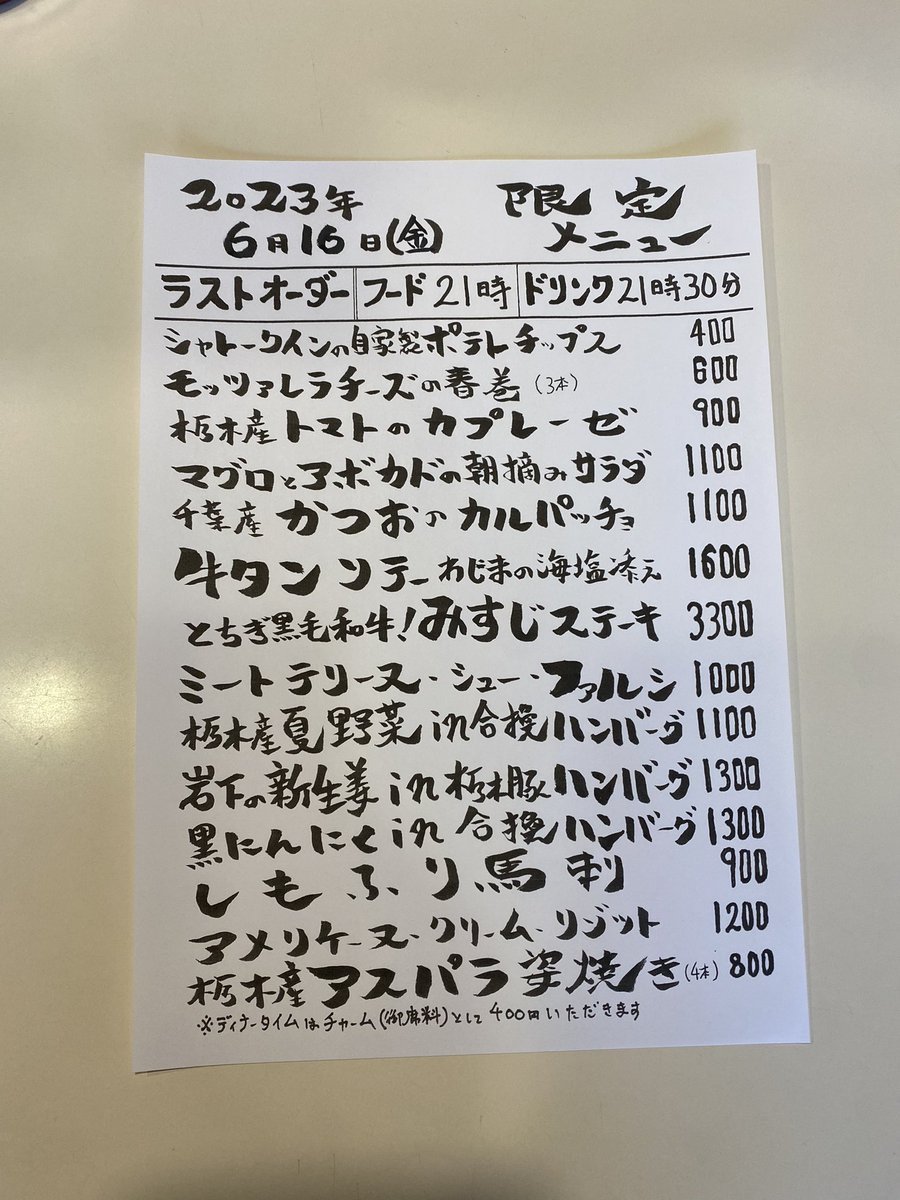 2023年 限定
6月16日(金) メニュー
ラストオーダー フード21時 ドリンク21時30分
シャトーワインの自家製ポテトチップス 400
モッツァレラチーズの春巻(3本) 600
栃木産トマトのカプレーゼ 900
マグロとアボカドの朝摘みサラダ 1100
千葉産かつおのカルパッチョ 1100
牛タンソテーわじまの海塩添え 1600
とちぎ黒毛和牛!みすじステーキ 3300
ミートテリーヌ・シュー・ファルシ 1000
栃木産夏野菜in合挽ハンバーグ 1100
岩下の新生姜in栃木豚ハンバーグ 1300
黒にんにくin合挽ハンバーグ 1300
しもふり馬刺 900
アメリケーヌ・クリーム・リゾット 1200
栃木産アスパラ姿焼き(4本) 800
※ディナータイムはチャーム(御席料)として400円いただきます